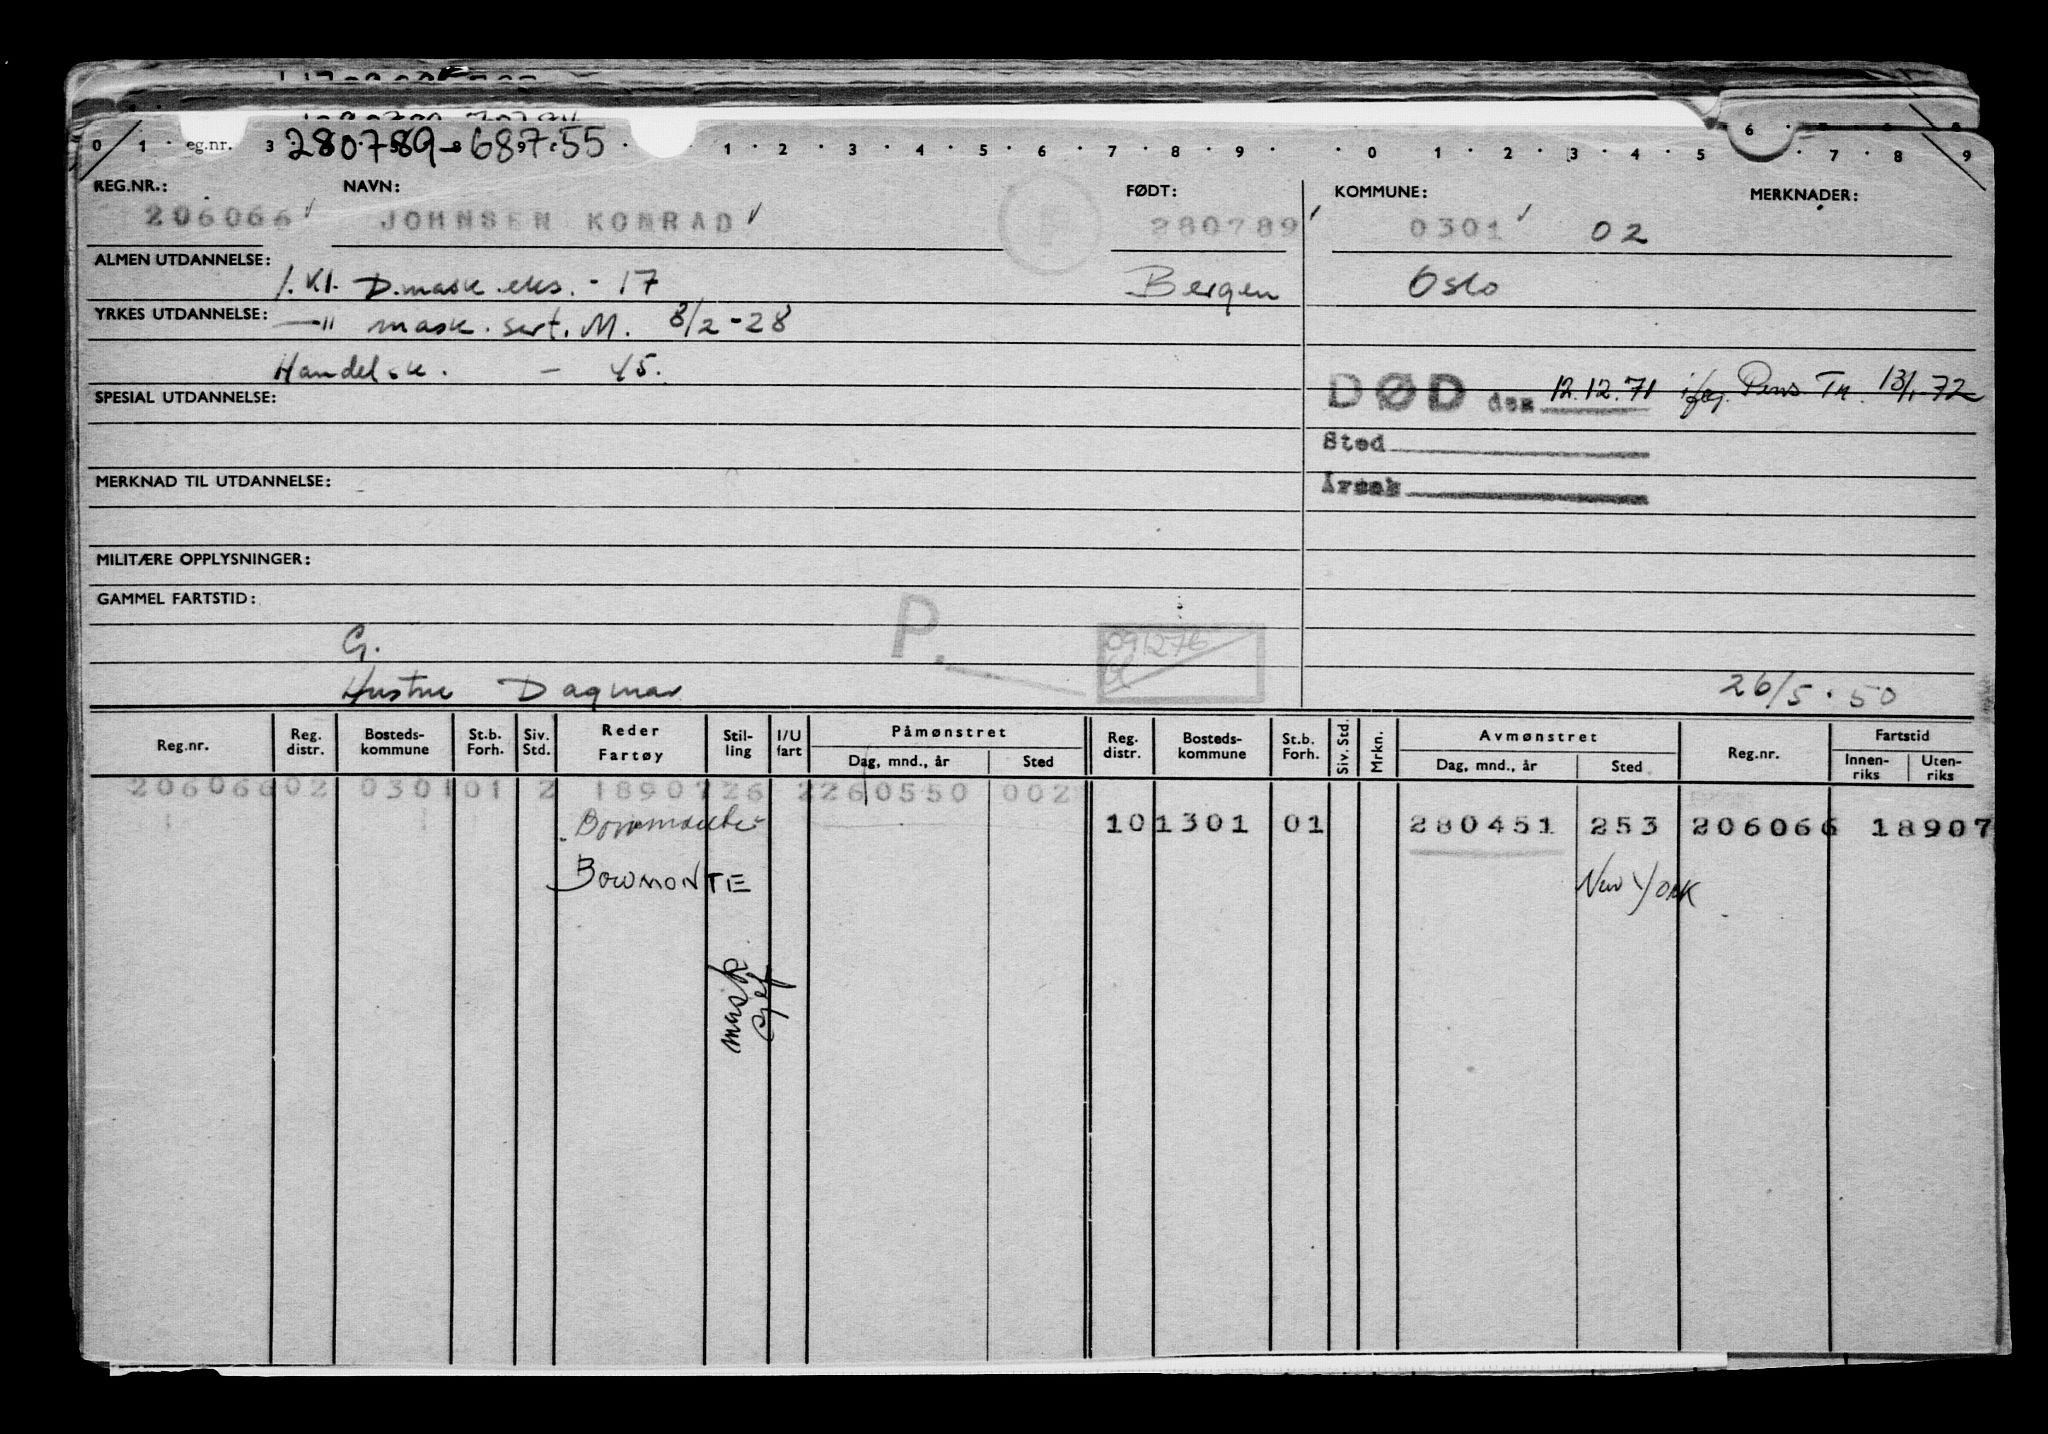 0 1 eg.nr. 3 280789-68755 1 2 3 4 5 6 7 8 9 0 1 2 3 4 5 6 7 8 9
REG.NR.: NAVN: FØDT: KOMMUNE: MERKNADER:
206066 JOHNSEN KONRAD 280789 0301 02
ALMEN UTDANNELSE: 1. Kl. D.mask.eks. - 17 Bergen Oslo
YRKES UTDANNELSE: —"— mask. sert. M. 8/2-28
Handelsk. - 45.
DØD den 12.12.71 iføg. Pens Tr. 13/1-72
SPESIAL UTDANNELSE:
Sted
MERKNAD TIL UTDANNELSE:
Årsak
MILITÆRE OPPLYSNINGER:
GAMMEL FARTSTID:
P.
G. 091276
Hustru Dagmar 26/5.50
Reg.nr. Reg. distr. Bosteds-kommune St.b. Forh. Siv. Std. Reder Fartøy Stil-ling I/U fart Påmønstret Dag, mnd., år Sted Reg. distr. Bosteds-kommune St.b. Forh. Siv. Std. Mrkn. Avmønstret Dag, mnd., år Sted Reg.nr. Fartstid Innen-riks Uten-riks
206066 02 0301 01 2 18907 26 2 260550 002
10 1301 01 280451 253 206066 18907
BOWMONTE New York
mask
sjef